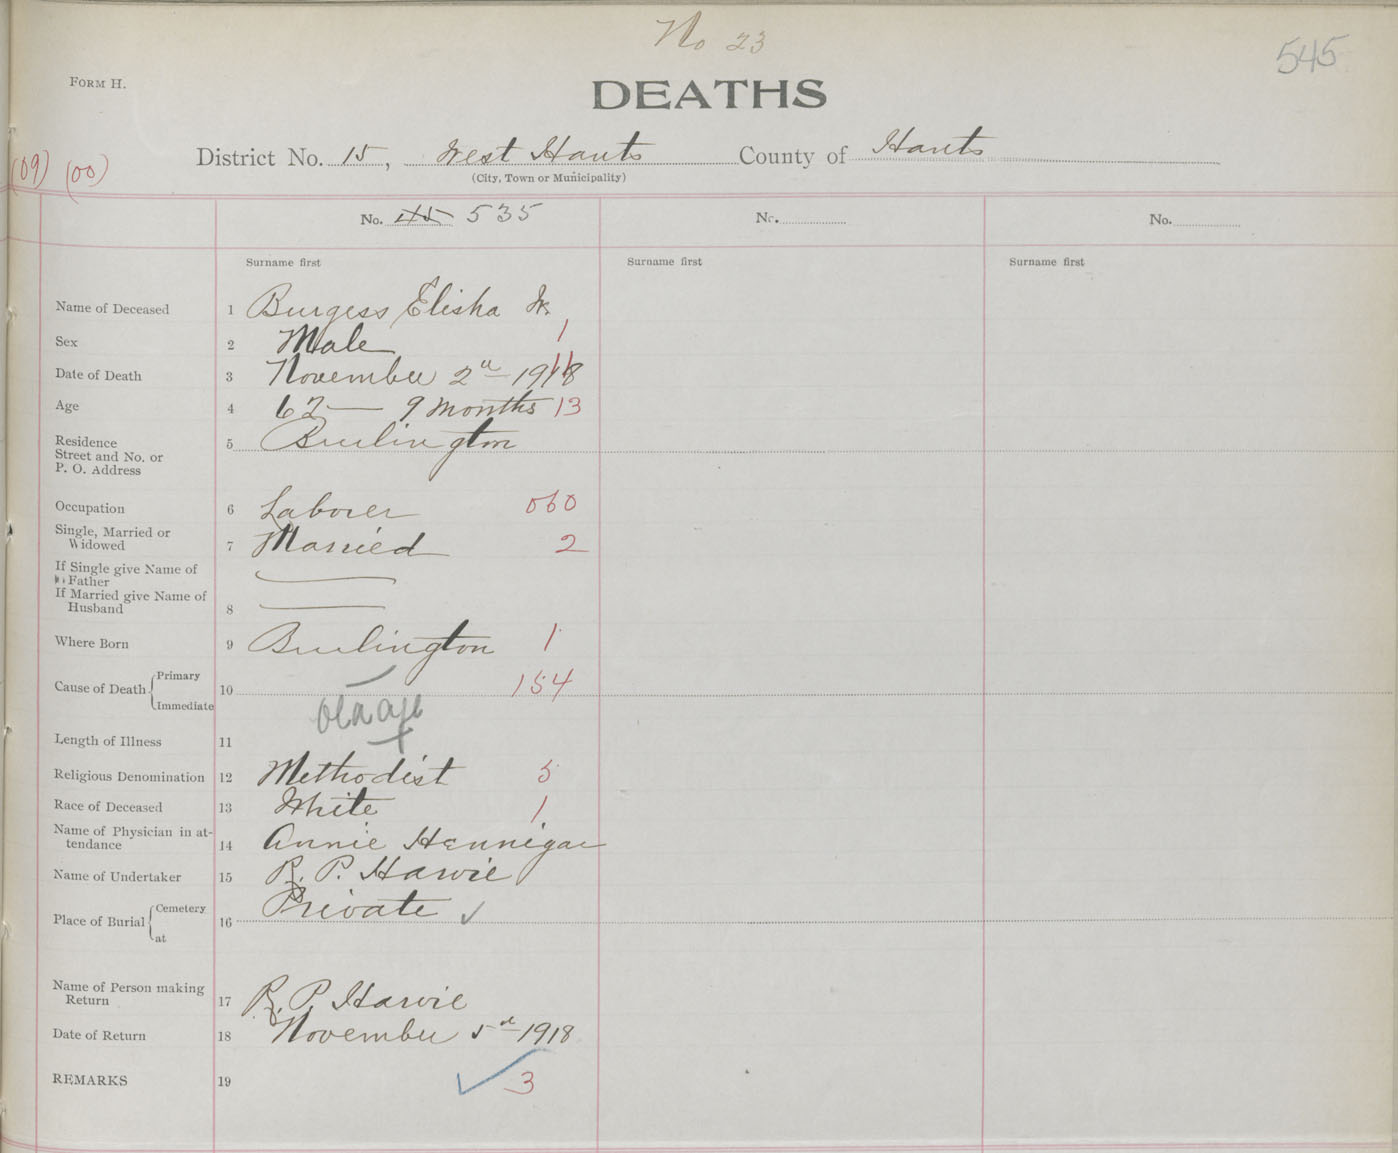 No 23
545
FORM H.
DEATHS
(09) (00)
District No. 15, West Hants County of Hants
(City, Town or Municipality)
No. 45 535 No. No.
Surname first Surname first Surname first
Name of Deceased 1 Burgess Elisha W.
Sex 2 Male 1
Date of Death 3 November 2nd 1918 11
Age 4 62 — 9 months 13
Residence
Street and No. or
P. O. Address 5 Burlington
Occupation 6 Laborer 060
Single, Married or
Widowed 7 Married 2
If Single give Name of
Father
If Married give Name of
Husband 8
Where Born 9 Burlington 1
Cause of Death Primary
Immediate 10 154
old age
Length of Illness 11
Religious Denomination 12 Methodist 5
Race of Deceased 13 White 1
Name of Physician in at-
tendance 14 Annie Hennigar
Name of Undertaker 15 R. P. Harvie
Place of Burial Cemetery
at 16 Private ✓
Name of Person making
Return 17 R. P. Harvie
Date of Return 18 November 5d 1918
REMARKS 19 ✓ 3